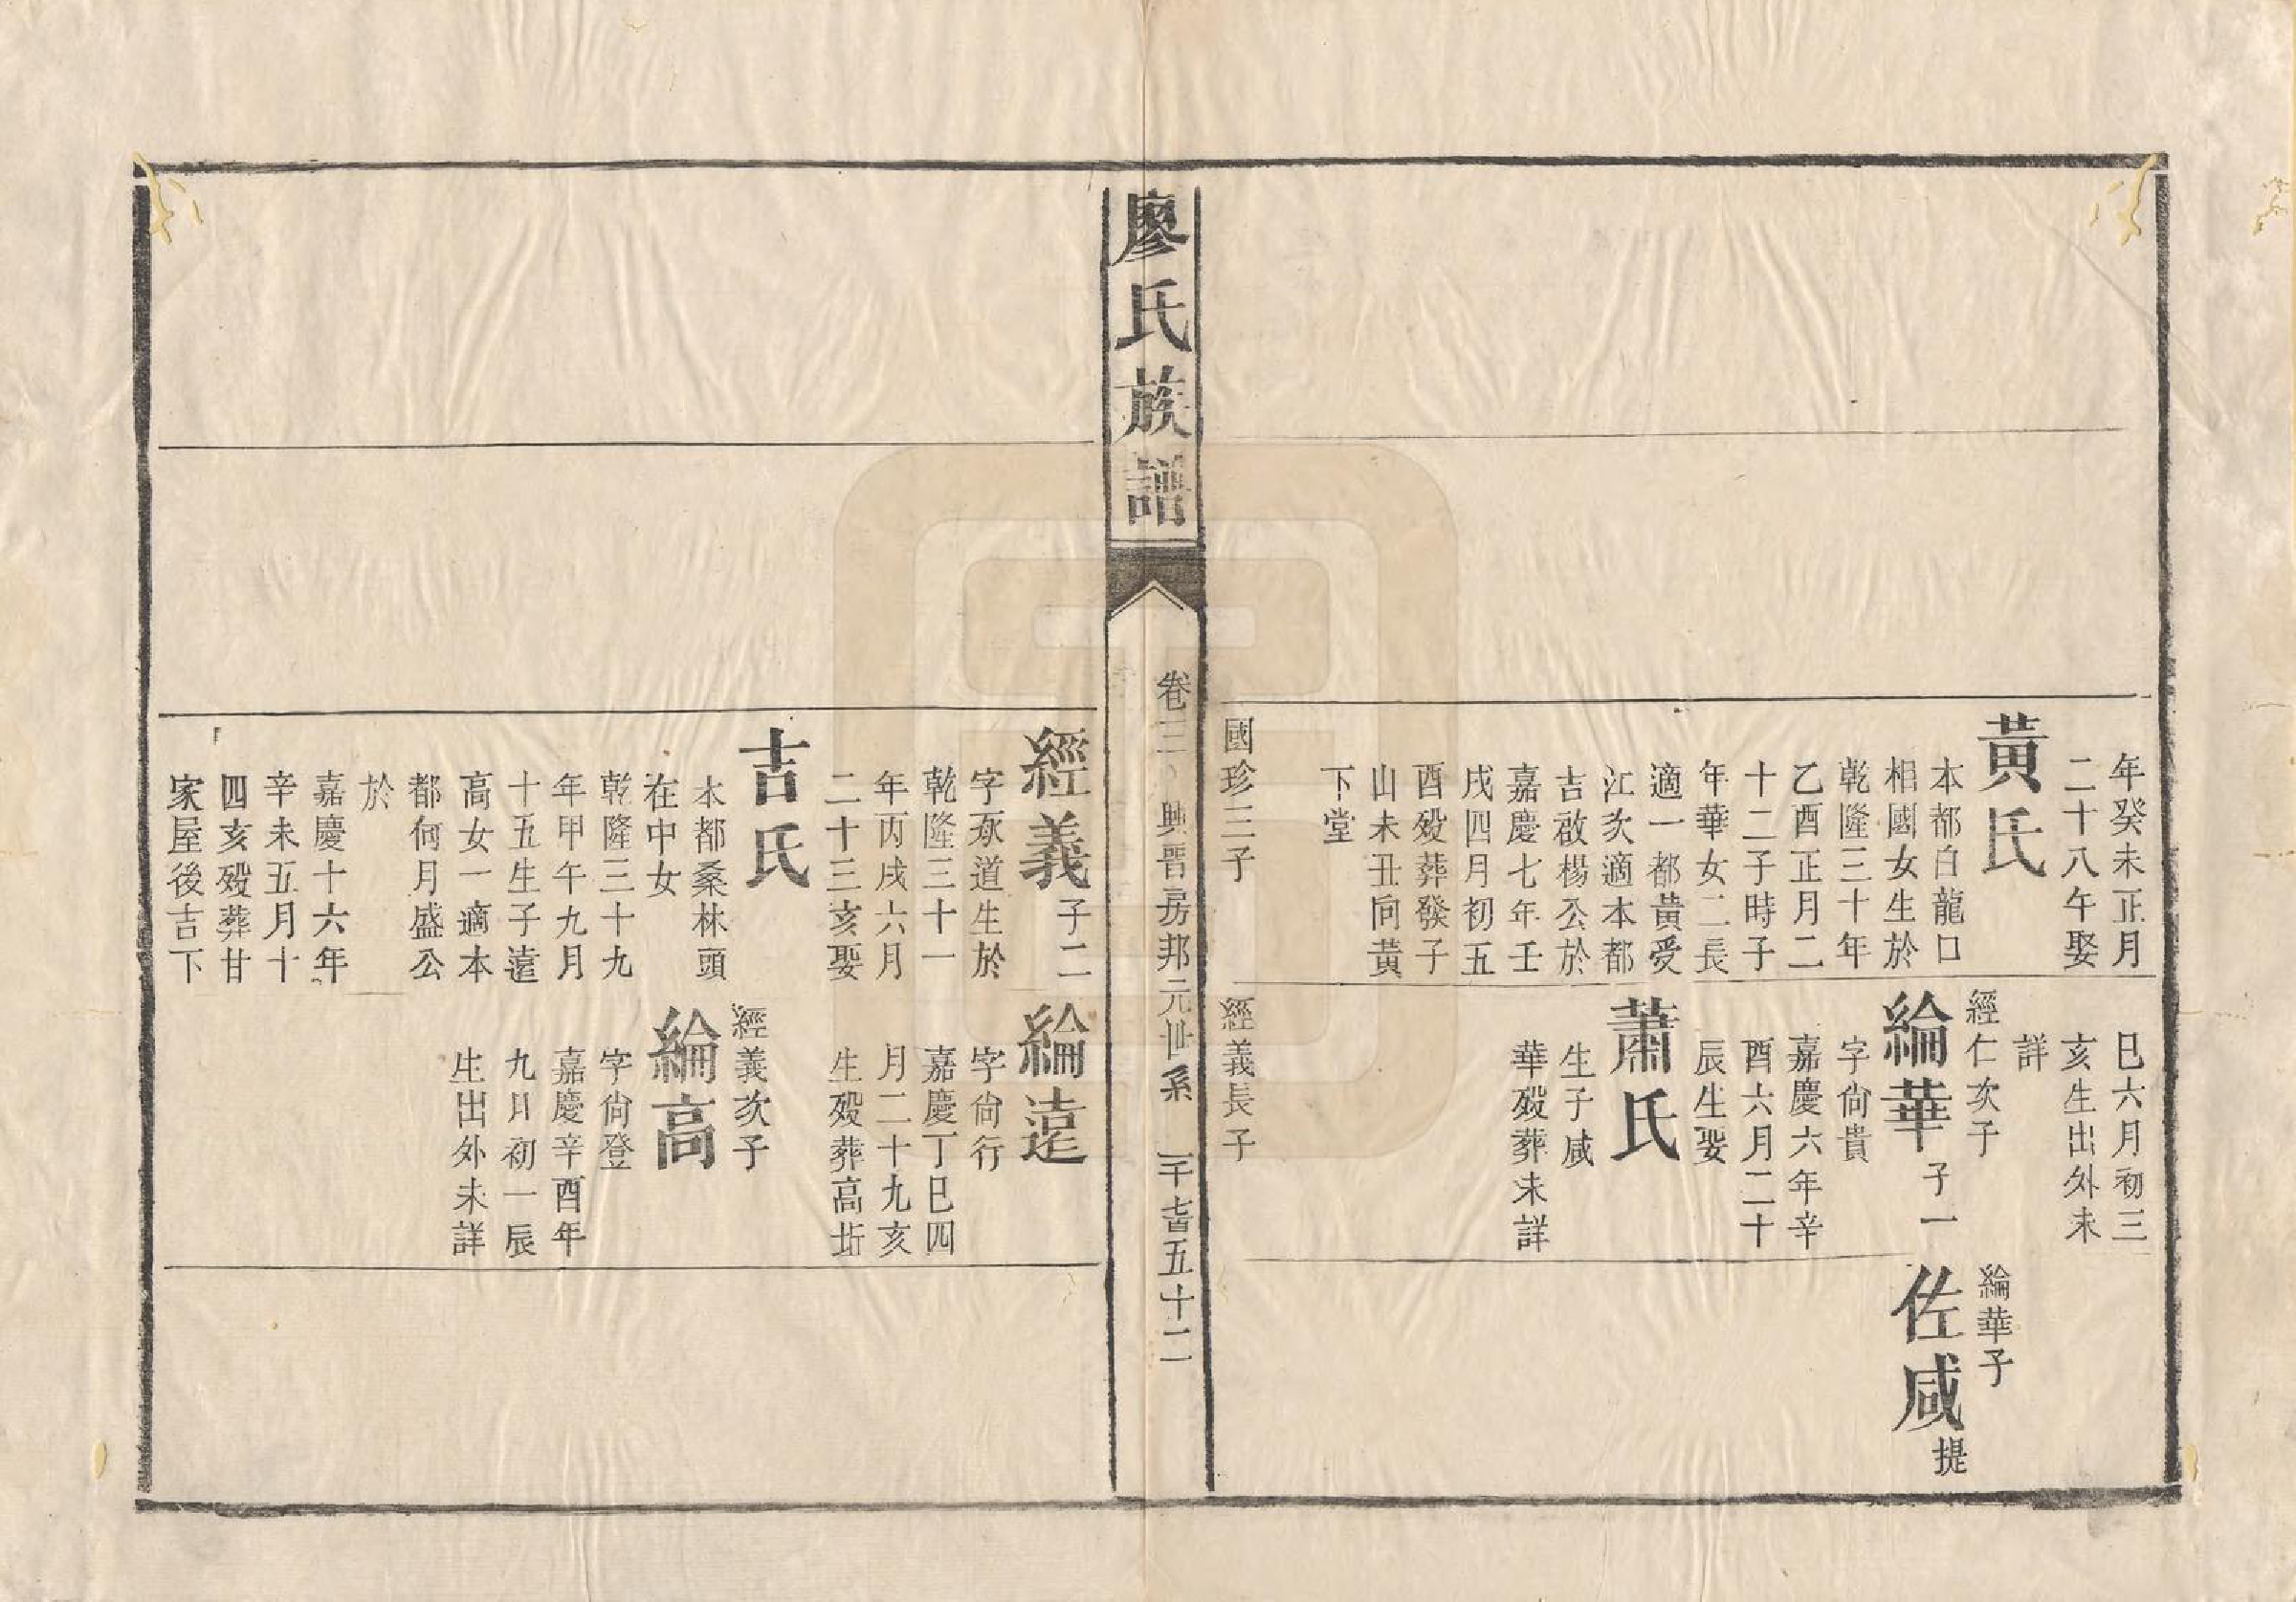 年癸未正月
二十八午娶
黃氏
本都白龍口
相國女生於
乾隆三十年
乙酉正月二
十二子時子
年華女二長
適一都黃受
江次適本都
吉啟楊公於
嘉慶七年壬
戌四月初五
酉殁葬發子
山未丑向黃
下堂
國珍三子
巳六月初三
亥生出外未
詳
經仁次子
綸華子一
字尙貴
嘉慶六年辛
酉六月二十
辰生娶
蕭氏
生子咸
華殁葬未詳
經義長子
綸華子
佐咸提
廖氏族譜
卷三
興晋房邦元世系
一千七百五十二
經義子二
字承道生於
乾隆三十一
年丙戌六月
二十三亥娶
吉氏
本都桑林頭
在中女
乾隆三十九
年甲午九月
十五生子遠
高女一適本
都何月盛公
於
嘉慶十六年
辛未五月十
四亥殁葬甘
家屋後吉下
綸遠
字尙行
嘉慶丁巳四
月二十九亥
生殁葬高坵
經義次子
綸高
字尙登
嘉慶辛酉年
九月初一辰
生出外未詳